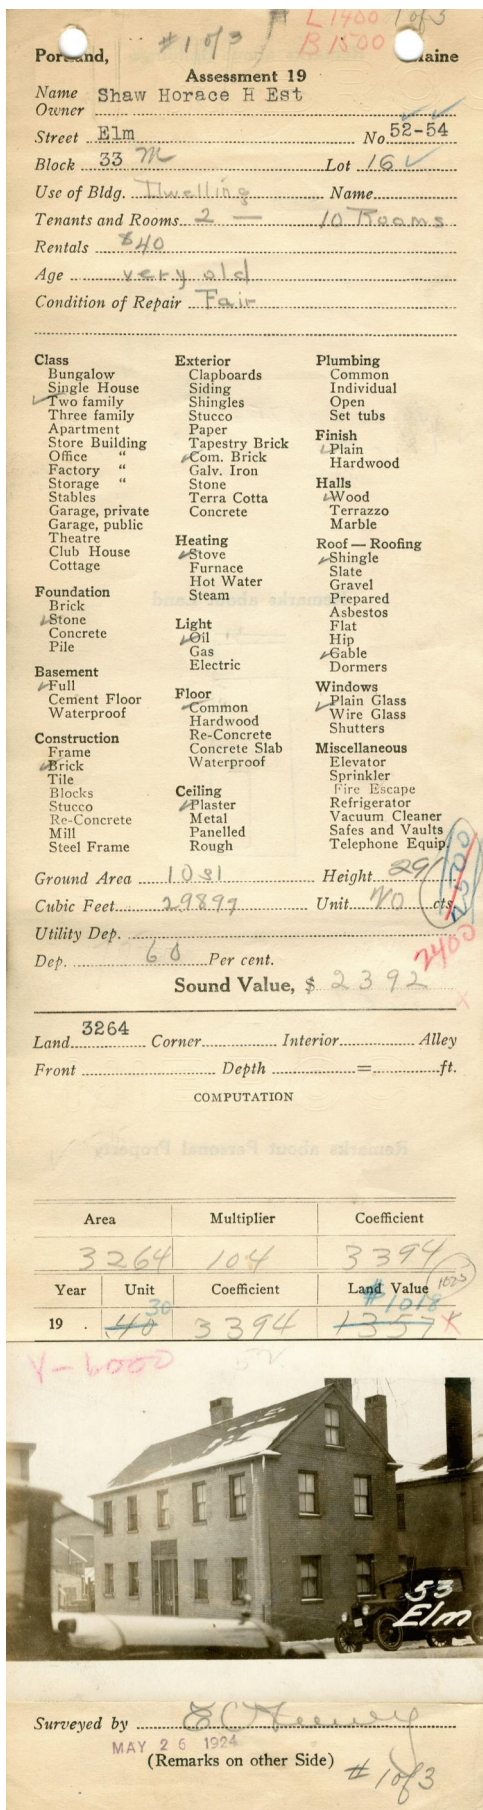 L 1400 1 of 3
# 1 of 3 B 1500
Portland, Maine
Assessment 19
Name Owner Shaw Horace H Est
Street Elm No. 52-54
Block 33 M Lot 16
Use of Bldg. Dwelling Name
Tenants and Rooms 2 — 10 Rooms
Rentals $40
Age very old
Condition of Repair Fair
Class
Bungalow
Single House
Two family
Three family
Apartment
Store Building
Office "
Factory "
Storage "
Stables
Garage, private
Garage, public
Theatre
Club House
Cottage
Foundation
Brick
Stone
Concrete
Pile
Basement
Full
Cement Floor
Waterproof
Construction
Frame
Brick
Tile
Blocks
Stucco
Re-Concrete
Mill
Steel Frame
Exterior
Clapboards
Siding
Shingles
Stucco
Paper
Tapestry Brick
Com. Brick
Galv. Iron
Stone
Terra Cotta
Concrete
Heating
Stove
Furnace
Hot Water
Steam
Light
Oil
Gas
Electric
Floor
Common
Hardwood
Re-Concrete
Concrete Slab
Waterproof
Ceiling
Plaster
Metal
Panelled
Rough
Plumbing
Common
Individual
Open
Set tubs
Finish
Plain
Hardwood
Halls
Wood
Terrazzo
Marble
Roof — Roofing
Shingle
Slate
Gravel
Prepared
Asbestos
Flat
Hip
Gable
Dormers
Windows
Plain Glass
Wire Glass
Shutters
Miscellaneous
Elevator
Sprinkler
Fire Escape
Refrigerator
Vacuum Cleaner
Safes and Vaults
Telephone Equip.
Ground Area 1031 Height 29
Cubic Feet 29899 Unit 20 cts.
Utility Dep.
2400
Dep. 60 Per cent.
Sound Value, $ 2392
x
Land 3264 Corner Interior Alley
Front Depth = ft.
COMPUTATION
Area Multiplier Coefficient
3264 104 3394
Year Unit Coefficient Land Value 1025
30 $1018
19 . 40 3394 1357 x
V-6000
53
Elm
Surveyed by
MAY 26 1924
(Remarks on other Side)
# 1 of 3